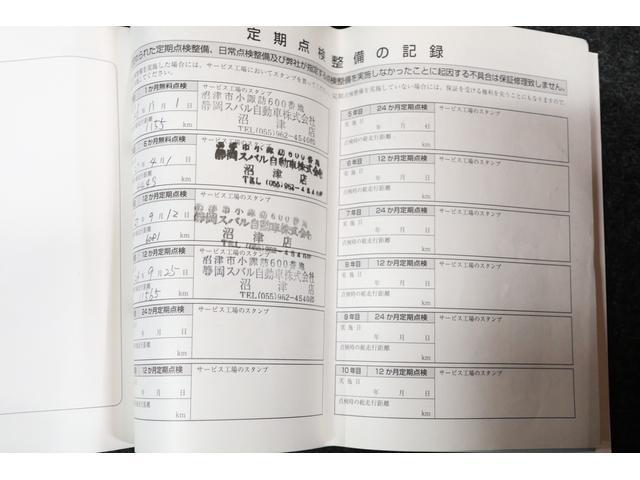 定期点検整備の記録
られた定期点検整備、日常点検整備及び弊社が指定する点検整備を実施しなかったことに起因する不具合は保証修理致しません。
1か月無料点検
サービス工場のスタンプ
年11月1日
1155 km
沼津市小諏訪600番地
静岡スバル自動車株式会社
沼津店
TEL(055)962-4540㈹
6か月無料点検
サービス工場のスタンプ
年4月1日
km
沼津市小諏訪600番地
静岡スバル自動車株式会社
沼津店
TEL(055)962-4540㈹
12か月定期点検
サービス工場のスタンプ
9月12日
km
沼津市小諏訪600番地
静岡スバル自動車株式会社
沼津店
12か月定期点検
サービス工場のスタンプ
年9月25日
11565 km
沼津市小諏訪600番地
静岡スバル自動車株式会社
沼津店
TEL(055)962-4540㈹
24か月定期点検
サービス工場のスタンプ
年 月 日
km
12か月定期点検
サービス工場のスタンプ
年 月 日
km
5年目 24か月定期点検
サービス工場のスタンプ
実施日 年 月 日
点検時の総走行距離
km
6年目 12か月定期点検
サービス工場のスタンプ
実施日 年 月 日
点検時の総走行距離
km
7年目 24か月定期点検
サービス工場のスタンプ
実施日 年 月 日
点検時の総走行距離
km
8年目 12か月定期点検
サービス工場のスタンプ
実施日 年 月 日
点検時の総走行距離
km
9年目 24か月定期点検
サービス工場のスタンプ
実施日 年 月 日
点検時の総走行距離
km
10年目 12か月定期点検
サービス工場のスタンプ
実施日 年 月 日
点検時の総走行距離
km